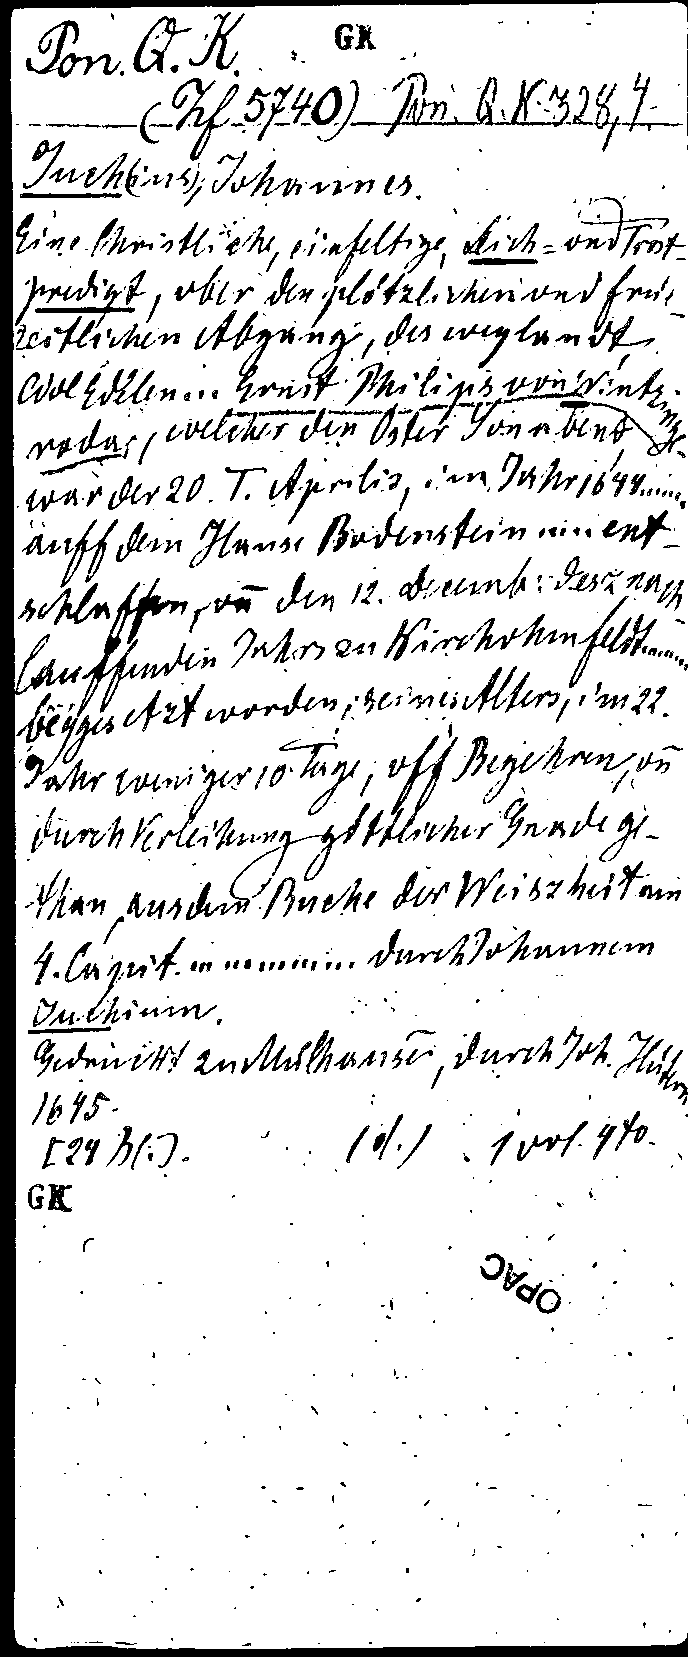 Pon. Q. K. GK
(Zf 5740) Pon. Q. K. 328, 4.
Juch(ius), Johannes.
Eine Christliche, einfeltige, Leich- und Trost-
predigt, vber den plötzlichen vnd früe-
zeitlichen Abgang, des weylandt,
WolEdelen... Ernst Philips von Wintzinge-
roda, welcher den Oster Sonabent,
war der 20. T. Aprilis, im Jahr 1644.....
auff dem Hause Bodenstein .... ent-
schlaffen, vñ den 12. Decemb: desz nach
lauffenden Jahrs zu Kirchohmfeldt.....
beÿgesetzt worden, seines Alters, im 22.
Jahr weniger 10. Tage, vff Begehren, vñ
durch Verleihung göttlicher Gnade ge-
than, aus dem Buche der Weiszheit am
4. Capit. ........ durch Johannem
Juchium.
Gedruckt zu Mülhausen, durch Joh. Hüter
1645.
[24 Bl.]. (d.) 1 vol. 4to.
GK
OPAC